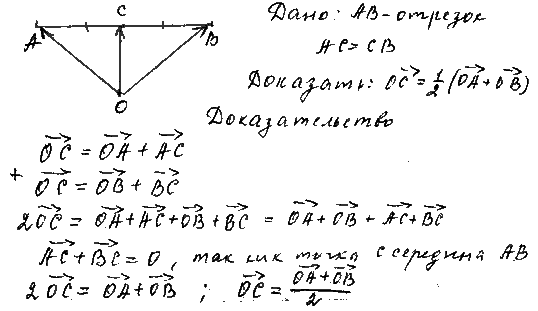 C
A B
O
Дано: AB - отрезок
AC = CB
Доказать: \overrightarrow{OC} = \frac{1}{2} (\overrightarrow{OA} + \overrightarrow{OB})
Доказательство
\overrightarrow{OC} = \overrightarrow{OA} + \overrightarrow{AC}
+
\overrightarrow{OC} = \overrightarrow{OB} + \overrightarrow{BC}
2\overrightarrow{OC} = \overrightarrow{OA} + \overrightarrow{AC} + \overrightarrow{OB} + \overrightarrow{BC} = \overrightarrow{OA} + \overrightarrow{OB} + \overrightarrow{AC} + \overrightarrow{BC}
\overrightarrow{AC} + \overrightarrow{BC} = 0, так как точка C середина AB
2\overrightarrow{OC} = \overrightarrow{OA} + \overrightarrow{OB} ; \overrightarrow{OC} = \frac{\overrightarrow{OA} + \overrightarrow{OB}}{2}